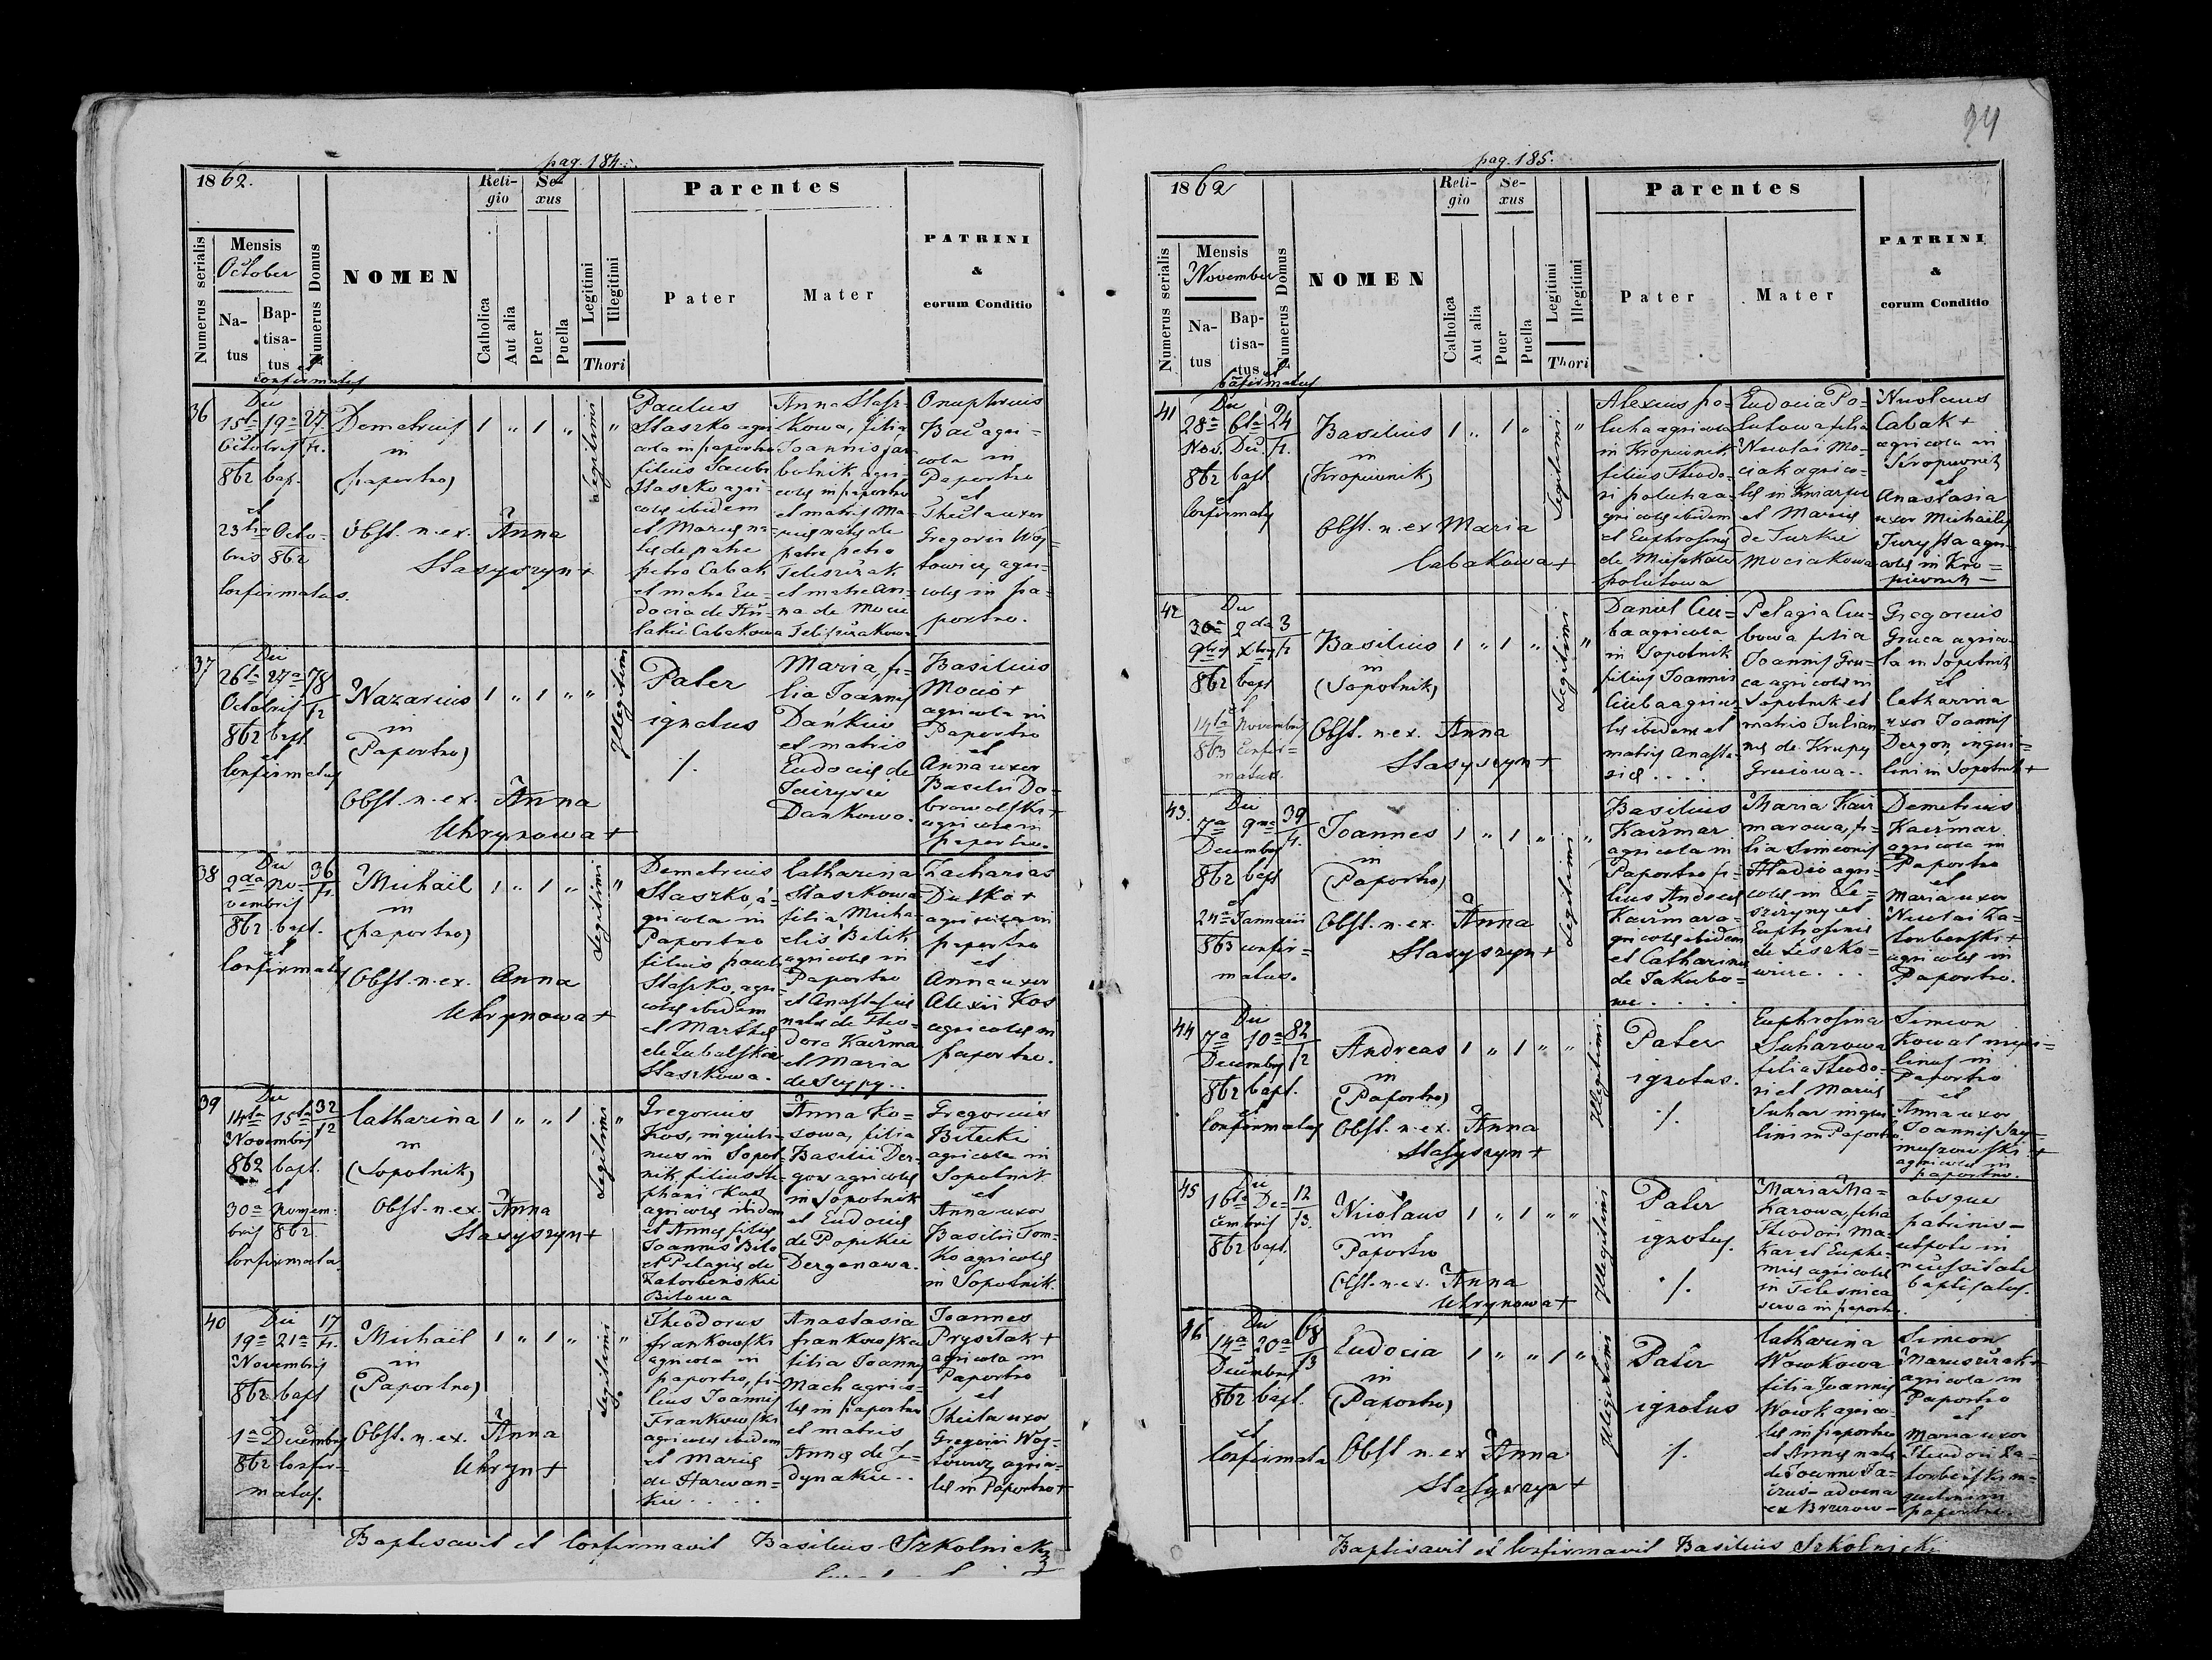 pag. 184.
1862.
Numerus serialis
Mensis
October
Natus
Baptisatus
et
confirmatus
Numerus Domus
NOMEN
Religio
Catholica
Aut alia
Sexus
Puer
Puella
Legitimi
Illegitimi
Thori
Parentes
Pater
Mater
PATRINI
&
eorum Conditio
36
Die
15ta 19a 27
Octobris
862 bap.
et
23tia Octo-
bris 862
Confirmatus.
Demetrius
in
(Paportno)
Obst. n. ex. Anna
Stasyszyn +
1 " 1 "
Legitimi
"
Paulus
Staszko agri
cola in paportno
filius Jacobi
Staszko agri-
colae ibidem
et Mariae na-
tae de patre
petro Cabak
et matre Eu-
docia de
Cabakowa
Anna Stasz-
kowa, filia
Joannis
agri-
colae in paportno
et matris Ma-
riae natae de
patre petro
et matre An-
na de
Onuphrius
Bac agri-
cola in
Paportno
et
Thecla uxor
Gregorii Woj-
towicz agri-
colae in Pa-
portno.
37
Die
26ta 27a 78
Octobris 12
862 bapt.
et
Confirmatus
Nazarius
in
(Paportno)
Obst. n. ex. Anna
Uhrynowa +
1 " 1 " "
Illegitimi
Pater
ignotus
./.
Maria, fi-
lia Joannis
Dańkiw
et matris
Eudociae de
Dankowa.
Basilius
Mocio +
agricola in
Paportno
et
Anna uxor
Basilii Do-
browolski +
agricolae in
paportno.
38
Die
2da No- 36
vembris
862 bapt.
et
Confirmatus
Michaël
in
(paportno)
Obst. n. ex. Anna
Uhrynowa +
1 " 1 "
Legitimi
"
Demetrius
Staszko, a-
gricola in
Paportno
filius pauli
Staszko, agri-
colae ibidem
et Marthae
Staszkowa.
Catharina
Staszkowa
filia Micha-
elis Bilik
agricolae in
Paportno
et Anastasiae
natae de Theo-
doro Kaczma
et Maria
Zacharias
Dutko +
agricola in
paportno
et
Anna uxor
Alexii Kos
agricolae in
paportno.
39
Die
14ta 15ta 32
Novembris 12
862 bapt.
et
30a Novem-
bris 862
Confirmata.
Catharina
in
(Sopotnik)
Obst. n. ex. Anna
Stasyszyn +
1 " " 1
Legitimi
"
Gregorius
Kos, inquili-
nus in Sopot-
nik, filius Ste-
phani Kos
agricolae ibidem
et Annae filiae
Joannis Bilo
et Pelagiae de
Zatorbenskie
Bilowa
Anna Ko-
sowa, filia
Basilii Der-
gon agricolae
in Sopotnik
et Eudociae
de Popikie
Dergonowa.
Gregorius
Bilecki
agricola in
Sopotnik
et
Anna uxor
Basilii Tom-
ko agricolae
in Sopotnik.
40
Die 17
19a 21a
Novembris
862 bapt
et
1a Decembris
862 Confir-
matus.
Michaël
in
(Paportno)
Obst. n. ex. Anna
Uhryn +
1 " 1 "
Legitimi
"
Theodorus
frankowski
agricola in
paportno, fi-
lius Joannis
Frankowski
agricolae ibidem
et Mariae
de Harwan-
kie . . . .
Anastasia
frankowska
filia Joannis
Mach agrico-
lae in paportno
et matris
Annae de Je-
dynakie . .
Joannes
Prysztak +
agricola in
Paportno
et
Thecla uxor
Gregorii Woj-
towicz agrico-
lae in Paportno +
Baptisavit et Confirmavit Basilius Szkolnicki
94
pag. 185.
1862
Numerus serialis
Mensis
November
Natus
Baptisatus
et
confirmatus
Numerus Domus
NOMEN
Religio
Catholica
Aut alia
Sexus
Puer
Puella
Legitimi
Illegitimi
Thori
Parentes
Pater
Mater
PATRINI
&
eorum Conditio
41
Die
28a 6ta 24
Nov. Dec.
862 bapt
et
Confirmatus
Basilius
in
(Kropiwnik)
Obst. n. ex Maria
Cabakowa +
1 " 1 "
Legitimi.
"
Alexius po-
lucha agricola
in Kropiwnik
filius Theodo-
ri polucha a-
gricolae ibidem
et Euphrosinae
Eudocia Po-
lutowa filia
Nicolai Mo-
ciak agrico-
lae in
et Mariae
de Turkie
Mociakowa
Nicolaus
Cabak +
agricola in
Kropiwnik
et
Anastasia
uxor Michaelis
agri-
colae in Kro-
piwnik -
42
Die
30a 2da 3
9bris Xbris
862 bapt
et
14ta Novembris
863 Confir-
matus.
Basilius
in
(Sopotnik)
Obst. n. ex. Anna
Stasyszyn +
1 " 1 "
Legitimi
"
Daniel Ciu-
ba agricola
in Sopotnik
filius Joannis
Ciuba agrico-
lae ibidem et
matris Anasta-
siae . . . .
Pelagia Ciu-
bowa filia
Joannis Gru-
ca agricolae in
Sopotnik et
matris Julian-
nae de Krupy
Gruciowa . .
Gregorius
Gruca agrico-
la in Sopotnik
et
Catharina
uxor Joannis
Dergon, inqui-
lini in Sopotnik +
43.
Die
7a 9na 39
Decembris
862 bapt
et
24a Januarii
863 confir-
matus.
Joannes
in
(Paportno)
Obst. n. ex. Anna
Stasyszyn +
1 " 1 "
Legitimi
"
Basilius
Kaczmar
agricola in
Paportno fi-
lius Andreae
Kaczmar a-
gricolae ibidem
et Catharinae
de Jakubo-
we . . . .
Maria Kacz
marowa, fi-
lia Simeonis
Hladio agri-
colae in Le-
szczyny et
Euphrosinae
de Leszko-
. . .
Demetrius
Kaczmar
agricola in
Paportno
et
Maria uxor
Nicolai Za-
torbenski +
agricolae in
Paportno.
44
Die
7a 10a 82
Decembris 12
862 bapt.
et
Confirmatus
Andreas
in
(Paportno)
Obst. n. ex. Anna
Stasyszyn +
1 " 1 " "
Illegitimi.
Pater
ignotus.
./.
Euphrosina
Suharowa
filia Theodo-
ri et Mariae
Suhar inqui-
lini in Paportno.
Simeon
Kowal inqui-
linus in
Paportno
et
Anna uxor
Joannis
+
agricolae in
paportno.
45
Die
16ta De- 12
cembris 13
862 bapt.
Nicolaus
in
Paportno
Obst. n. ex. Anna
Uhrynowa +
1 " 1 " "
Illegitimi
Pater
ignotus.
./.
Maria Ma-
karowa, filia
Theodori Ma-
kar et Euphe-
miae agricolae
in Telesnica
serva in paportno.
absque
patrinis -
utpote in
necessitate
baptisatus.
46
Die
14a 20a 68
Decembris 13
862 bapt.
et
Confirmata
Eudocia
in
(Paportno)
Obst n. ex Anna
Stasyszyn +
1 " " 1 "
Illegitimi
Pater
ignotus
./.
Catharina
Wowkowa
filia Joannis
Wowk agrico-
lae in paportno
et Annae natae
de Joanne
advena
Simeon
agricola in
Paportno
et
Maria uxor
Theodori Za-
torbenski in-
quilini in
paportno.
Baptisavit et Confirmavit Basilius Szkolnicki